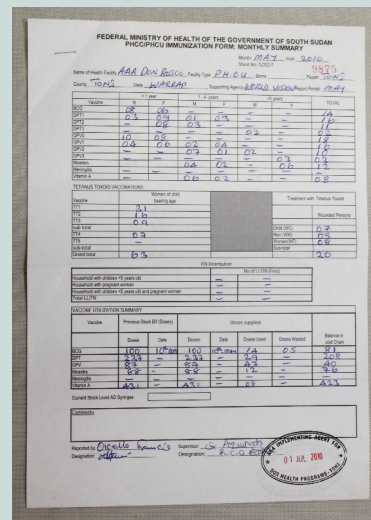 FEDERAL MINISTRY OF HEALTH OF THE GOVERNMENT OF SOUTH SUDAN
PHCC/PHCU IMMUNIZATION FORM: MONTHLY SUMMARY
Month: MAY Year 2010
Sheet No: GOSS-1
Name of Health Facility AAA DON BOSCO Facility Type P.H.C.U Boma Payam TONJ
County TONJ State WARRAP Supporting Agency WORLD VISION Report Period MAY
Vaccine 1-4 years TOTAL
M F M F M F
BCG 08 06 14
OPT1 03 09 01 03 16
OPT2 08 03 11
OPT3 02 02
OPV0 10 08 18
OPV1 04 06 02 04 16
OPV2 07 01 02 10
OPV3 03 03
Measles 04 02 06 12
Meningitis
Vitamin A 06 02 08
TETANUS TOXOID VACCINATIONS
Vaccine Women of child bearing age Treatment with Tetanus Toxoid
Wounded Persons
TT1 31
TT2 16
TT3 09
sub-total Child (WC) 07
TT4 07 Men (WM) 05
TT5 Women(WF) 08
sub-total Sub-total
Grand total 63 20
ITN Distribution
No of LLITN (Pres)
Household with children <5 years old
Household with pregnant woman
Household with children <5 years old and pregnant woman
Total LLITN
VACCINE UTILIZATION SUMMARY
Vaccine Previous Stock B/f (Doses) Doses supplied
Doses Date Doses Date Doses Used Doses Wasted Balance in cold Chain
BCG 100 100 14 05 81
OPT 237 - 237 - 29 - 208
OPV 87 - 87 - 47 - 40
Measles 88 - 88 - 12 - 76
Meningitis
Vitamin A 431 - 431 - 08 - 423
Current Stock Level AD Syringes
Comments:
Reported by: Francis Supervisor:
Designation: Designation:
IMPLEMENTING AGENT FOR
01 JUL 2010
HEALTH PROGRAMS - TONJ